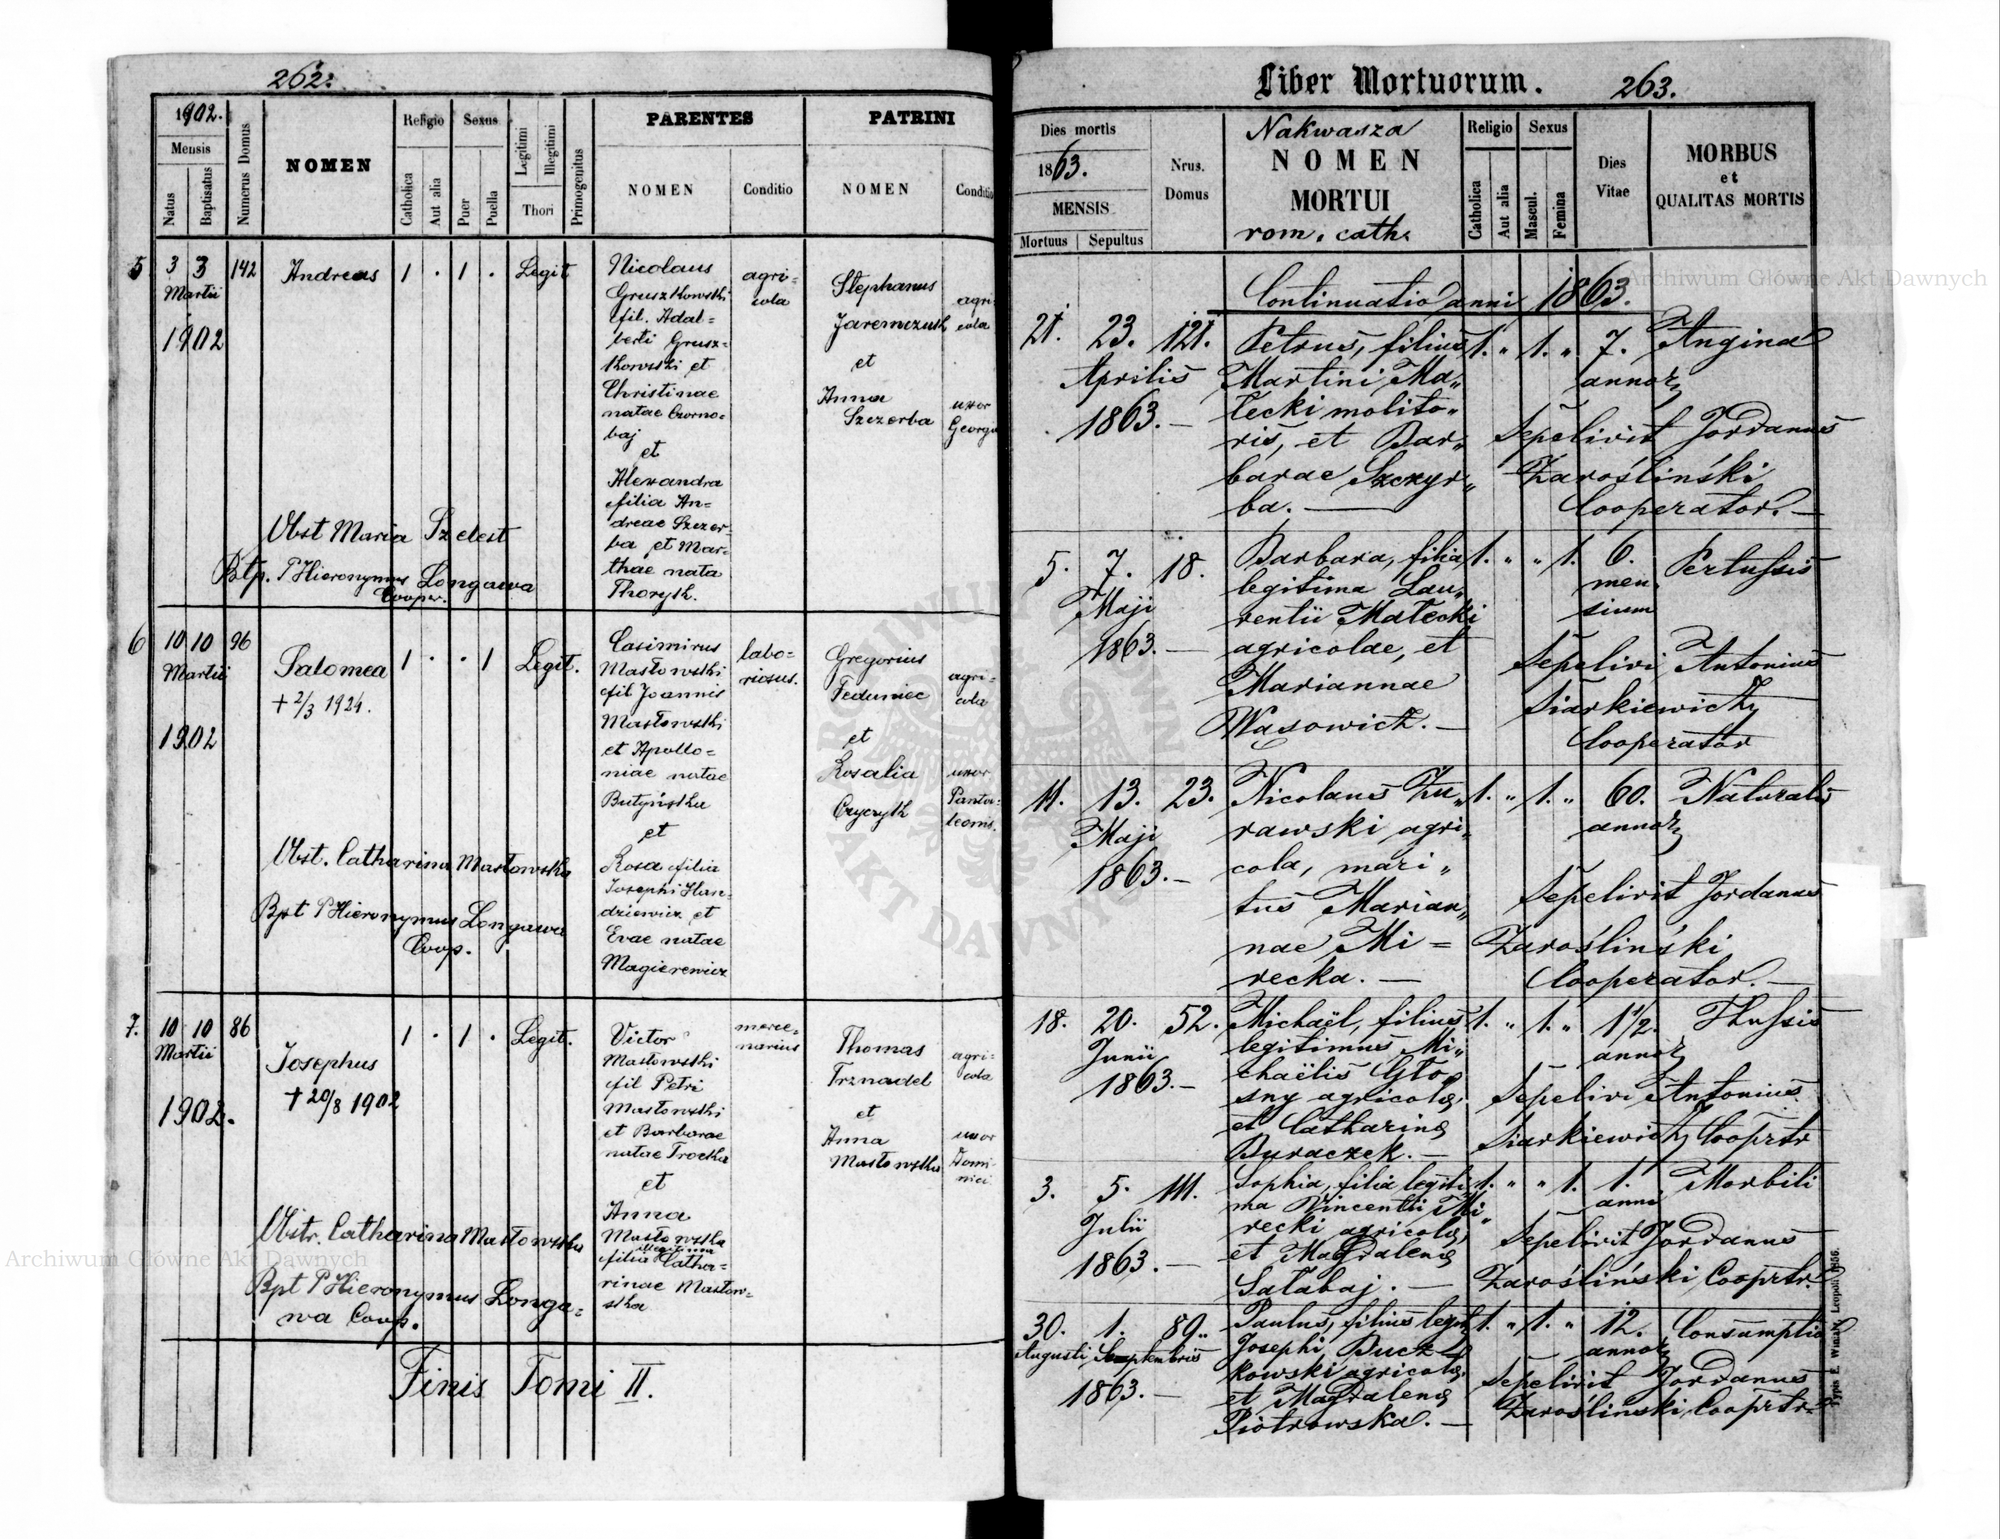 262.
1902.
Mensis
Natus
Baptisatus
Numerus Domus
NOMEN
Religio
Catholica
Aut alia
Sexus
Puer
Puella
Legitimi
Illegitimi
Thori
Primogenitus
PARENTES
NOMEN
Conditio
PATRINI
NOMEN
Conditio
5
3 3 142
Martii
1902
Andreas
1 . 1 . Legit
Nicolaus
Gruszkowski
fil. Adal=
berti Grusz=
kowski et
Christinae
natae Czorno=
baj
et
Alexandra
filia An=
dreae Szczer=
ba et Mar=
thae nata
Thoryk.
agri=
cola
Stephanus
Jaremczuk
et
Anna
Szczerba
agri
cola
uxor
Georgii
Obst Maria Szelest
Btp. P Hieronymus Longawa
Cooper.
6
10 10 96
Martii
1902
Salomea
+ 2/3 1924.
1 . . 1 Legit.
Casimirus
Masłowski
fil Joannis
Masłowski
et Apollo=
niae natae
Butyńska
et
Rosa filia
Josephi Han=
dziewicz et
Evae natae
Magierewicz
labo=
riosus.
Gregorius
Feduniec
et
Rosalia
Cryczyk
agri=
cola
uxor
Panta=
leonis.
Obst. Catharina Masłowska
Bpt P Hieronymus Longawa
Coop.
7.
10 10 86
Martii
1902.
Josephus
+ 20/8 1902
1 . 1 . Legit.
Victor
Masłowski
fil Petri
Masłowski
et Barbarae
natae Trocka
et
Anna
Masłowska
illegitima
filia Catha=
rinae Masłow=
ska
merce=
narius
Thomas
Trznadel
et
Anna
Masłowska
agri=
cola
uxor
Domi=
nici
Obstr. Catharina Masłowska
Bpt P Hieronymus Longa=
wa Coop.
Finis Tomi II.
Liber Mortuorum.
263.
Dies mortis
1863.
MENSIS
Mortuus
Sepultus
Nrus.
Domus
Nakwasza
NOMEN
MORTUI
rom. cath.
Religio
Catholica
Aut alia
Sexus
Mascul.
Femina
Dies
Vitae
MORBUS
et
QUALITAS MORTIS
Continuatio anni 1863.
21. 23. 121.
Aprilis
1863.—
Petrus, filius
Martini Ma„
łecki molito„
ris, et Bar„
barae Szczyr„
ba.—
1. „ 1. „ 7. Angina
annor
Sepelivit Jordanus
Zarośliński
Cooperator.—
5. 7. 18.
Maji
1863.—
Barbara, filia
legitima Lau„
rentii Małecki
agricolae, et
Mariannae
Wasowicz.—
1. „ „ 1. 6. Pertussis
men„
sium
Sepelivi Antonius
Siarkiewicz
Cooperator
11. 13. 23.
Maji
1863.—
Nicolaus Żu„
rawski agri„
cola, mari„
tus Marian„
nae Mi=
recka.—
1. „ 1. „ 60. Naturalis
annor
Sepelivit Jordanus
Zarośliński
Cooperator.—
18. 20. 52.
Junii
1863.—
Michaël, filius
legitimus Mi„
chaëlis Gło„
sny agricolae,
et Catharinae
Buraczek.—
1. „ 1. „ 1 1/2. Thussis
annor
Sepelivi Antonius
Siarkiewicz Cooprtr
3. 5. 111.
Julii
1863.—
Sophia, filia legiti„
ma Vincentii Mi„
recki agricolae,
et Magdalenae
Sałabaj.—
1. „ „ 1. 1. Morbili
anni
Sepelivit Jordanus
Zarośliński Cooprtr.
30. 1. 89.
Augusti Septembris
1863.—
Paulus, filius legit
Josephi Bucz„
kowski agricolae,
et Magdalenae
Piotrowska.—
1. „ 1. „ 12. Consumptio
annor
Sepelivit Jordanus
Zarośliński Cooprtr.
Typis E. Winiarz Leopoli 1866.
Archiwum Główne Akt Dawnych
Archiwum Główne Akt Dawnych
ARCHIWUM GŁÓWNE AKT DAWNYCH